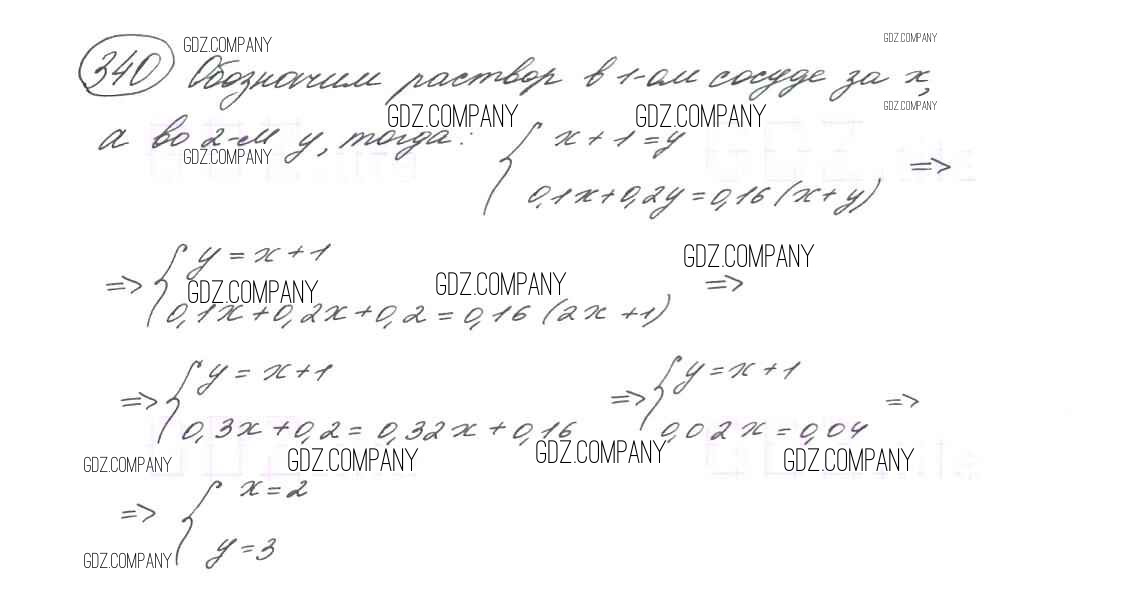 340 Обозначим раствор в 1-ом сосуде за x,
а во 2-м y, тогда: { x + 1 = y
0,1x + 0,2y = 0,16 (x + y) =>
=> { y = x + 1
0,1x + 0,2x + 0,2 = 0,16 (2x + 1) =>
=> { y = x + 1
0,3x + 0,2 = 0,32x + 0,16
=> { y = x + 1
0,02x = 0,04 =>
=> { x = 2
y = 3
GDZ.COMPANY
GDZ.COMPANY
GDZ.COMPANY
GDZ.COMPANY
GDZ.COMPANY
GDZ.COMPANY
GDZ.COMPANY
GDZ.COMPANY
GDZ.COMPANY
GDZ.COMPANY
GDZ.COMPANY
GDZ.COMPANY
GDZ.COMPANY
GDZ.COMPANY